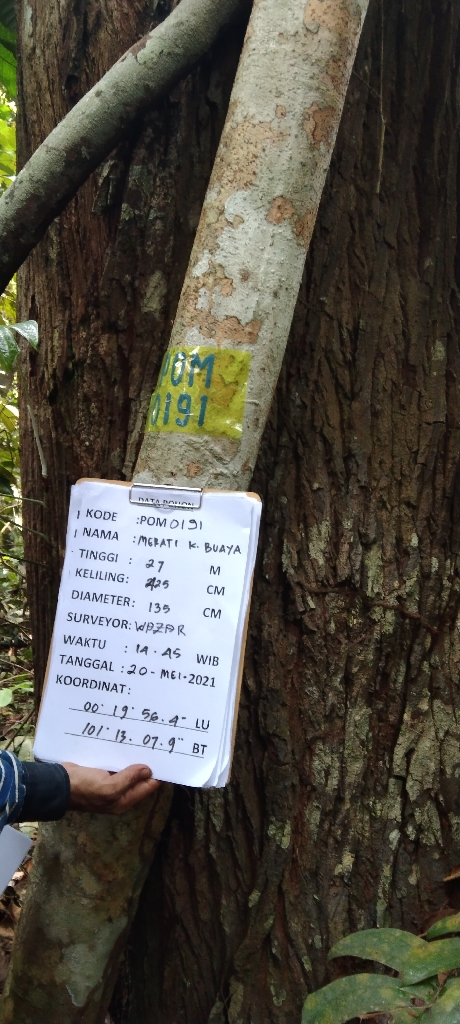 POM
0191
DATA POHON
KODE :POM 0191
NAMA :MERATI K. BUAYA
TINGGI : 27 M
KELILING: 425 CM
DIAMETER: 135 CM
SURVEYOR:
WAKTU : 14.45 WIB
TANGGAL :20-MEI-2021
KOORDINAT:
00° 19' 56.4" LU
101° 13. 07.9" BT